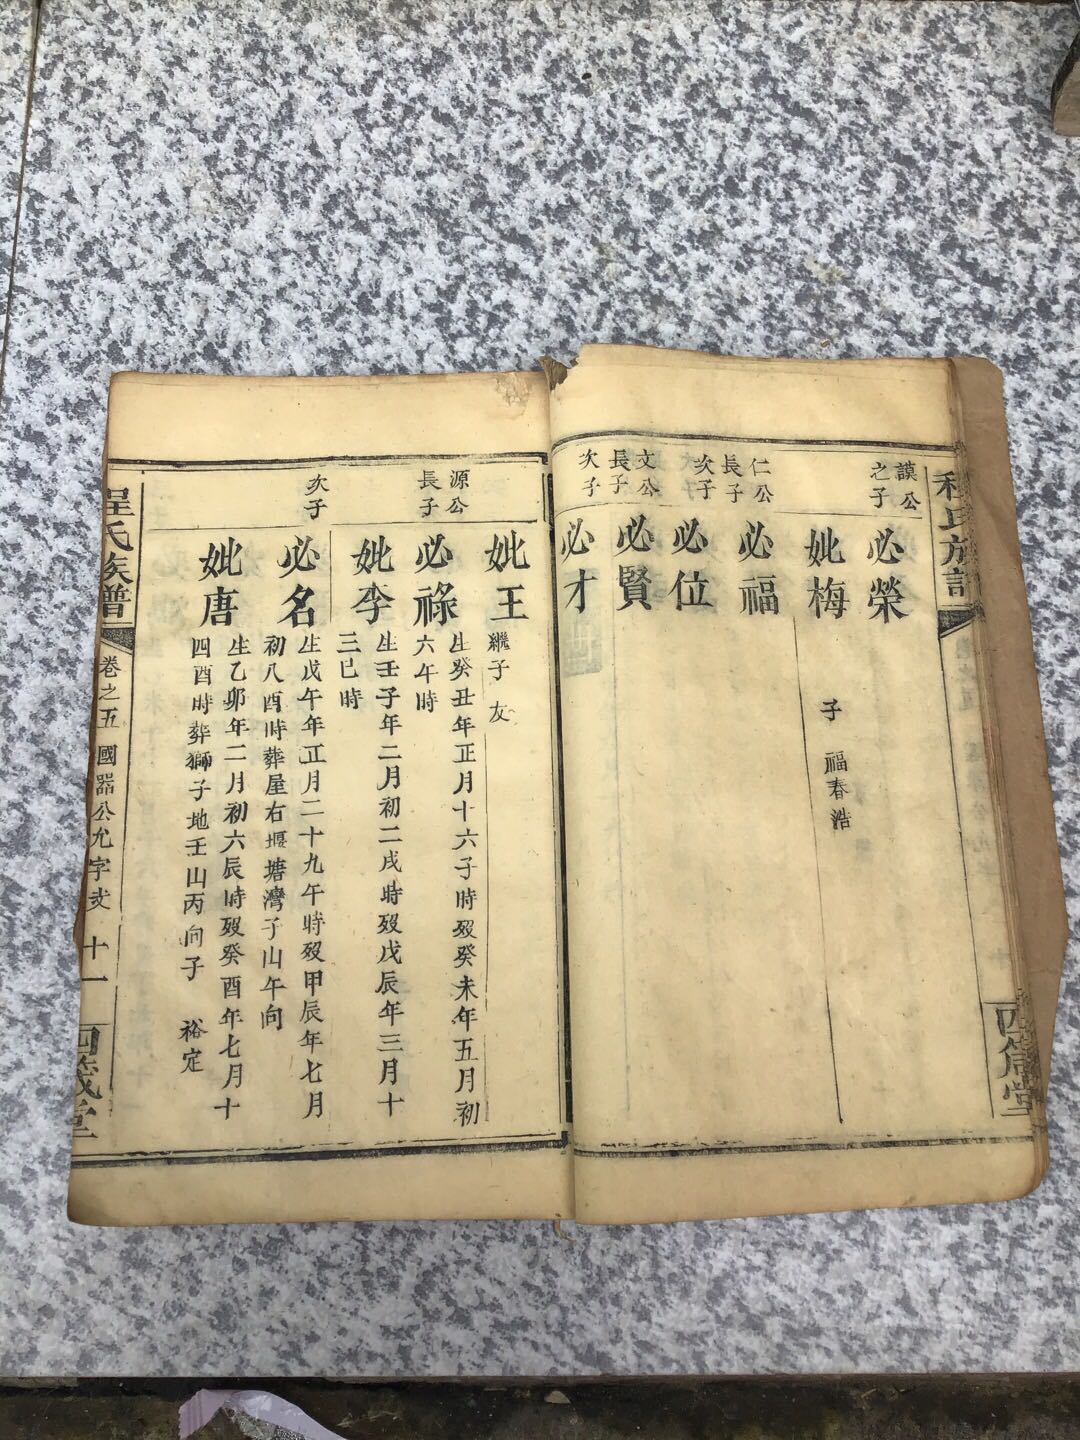 程氏族譜
四箴堂
謨公
之子
必榮
妣梅
子 福春浩
仁公
長子
必福
次子
必位
文公
長子
必賢
次子
必才
妣王
繼子 友
源公
長子
必祿
生癸丑年正月十六子時歿癸未年五月初
六午時
妣李
生壬子年二月初二戌時歿戊辰年三月十
三巳時
次子
必名
生戊午年正月二十九午時歿甲辰年七月
初八酉時葬屋右堰塘灣子山午向
妣唐
生乙卯年二月初六辰時歿癸酉年七月十
四酉時葬獅子地壬山丙向子 裕定
程氏族譜
卷之五 國器公允字支 十一
四箴堂